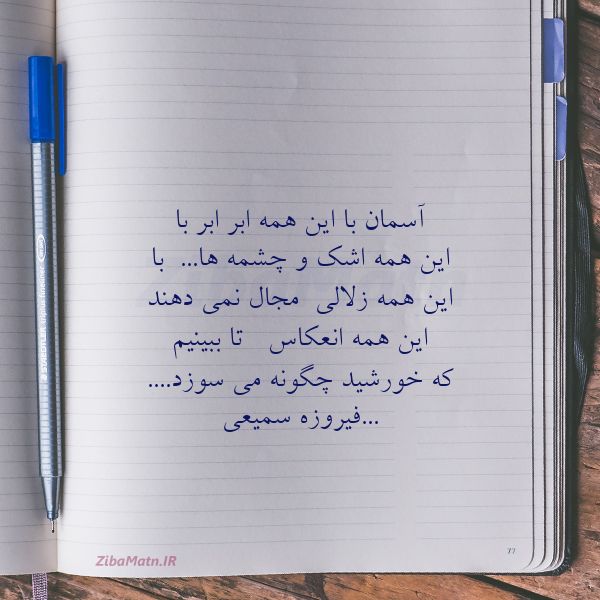 آسمان با این همه ابر ابر با
این همه اشک و چشمه ها... با
این همه زلالی مجال نمی دهند
این همه انعکاس تا ببینیم
که خورشید چگونه می سوزد....
...فیروزه سمیعی
77
ZibaMatn.IR